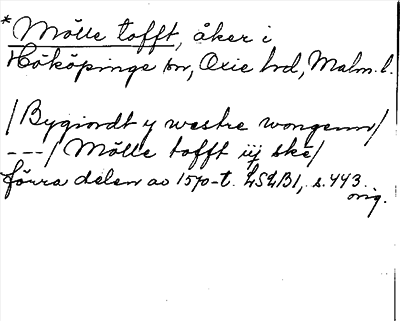 * Mölle tofft, åker i
Hököpinge sn, Oxie hd, Malm. l.
/Bygiordt y westre wongenn/
---/ Mölle tofft iij ske/
förra delen av 1570-t. LSLB1, s. 443.
orig.